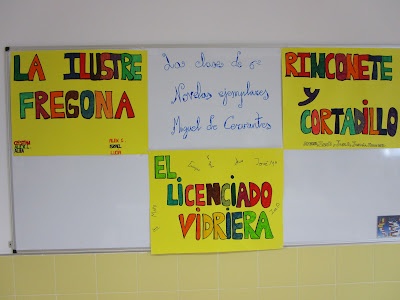 LA ILUSTRE
FREGONA
Las clases de 6º
Novelas ejemplares
Miguel de Cervantes
RINCONETE
y
CORTADILLO
EL
LICENCIADO
VIDRIERA